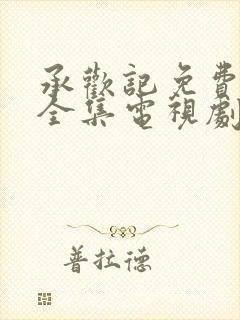 承歡記免費
全集電視劇
普拉德